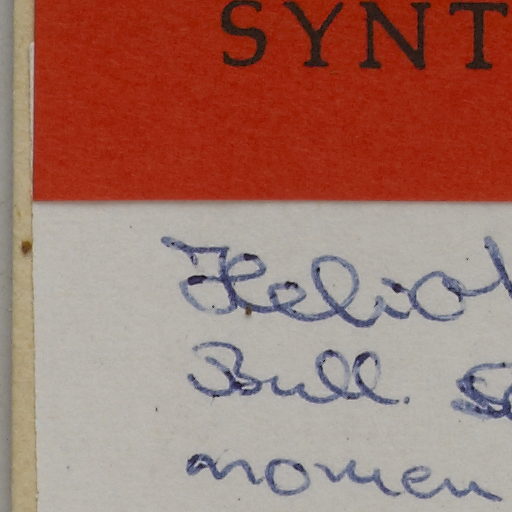 SYNT
Helio
Bull. S
nomen